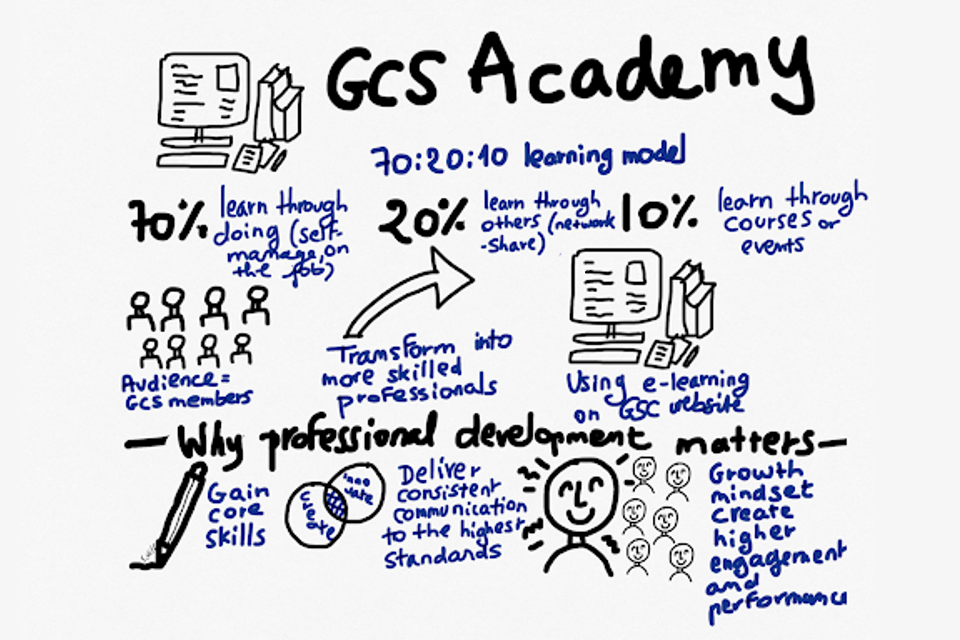 GCS Academy
70:20:10 learning model
70%
learn through
doing (self-
manage, on
the job)
20%
learn through
others (network
-share)
10%
learn through
courses or
events
Audience =
GCS members
Transform into
more skilled
professionals
Using e-learning
on GSC website
— Why professional development matters —
Gain
core
skills
create
inno
vate
Deliver
consistent
communication
to the highest
standards
Growth
mindset
create
higher
engagement
and
performance